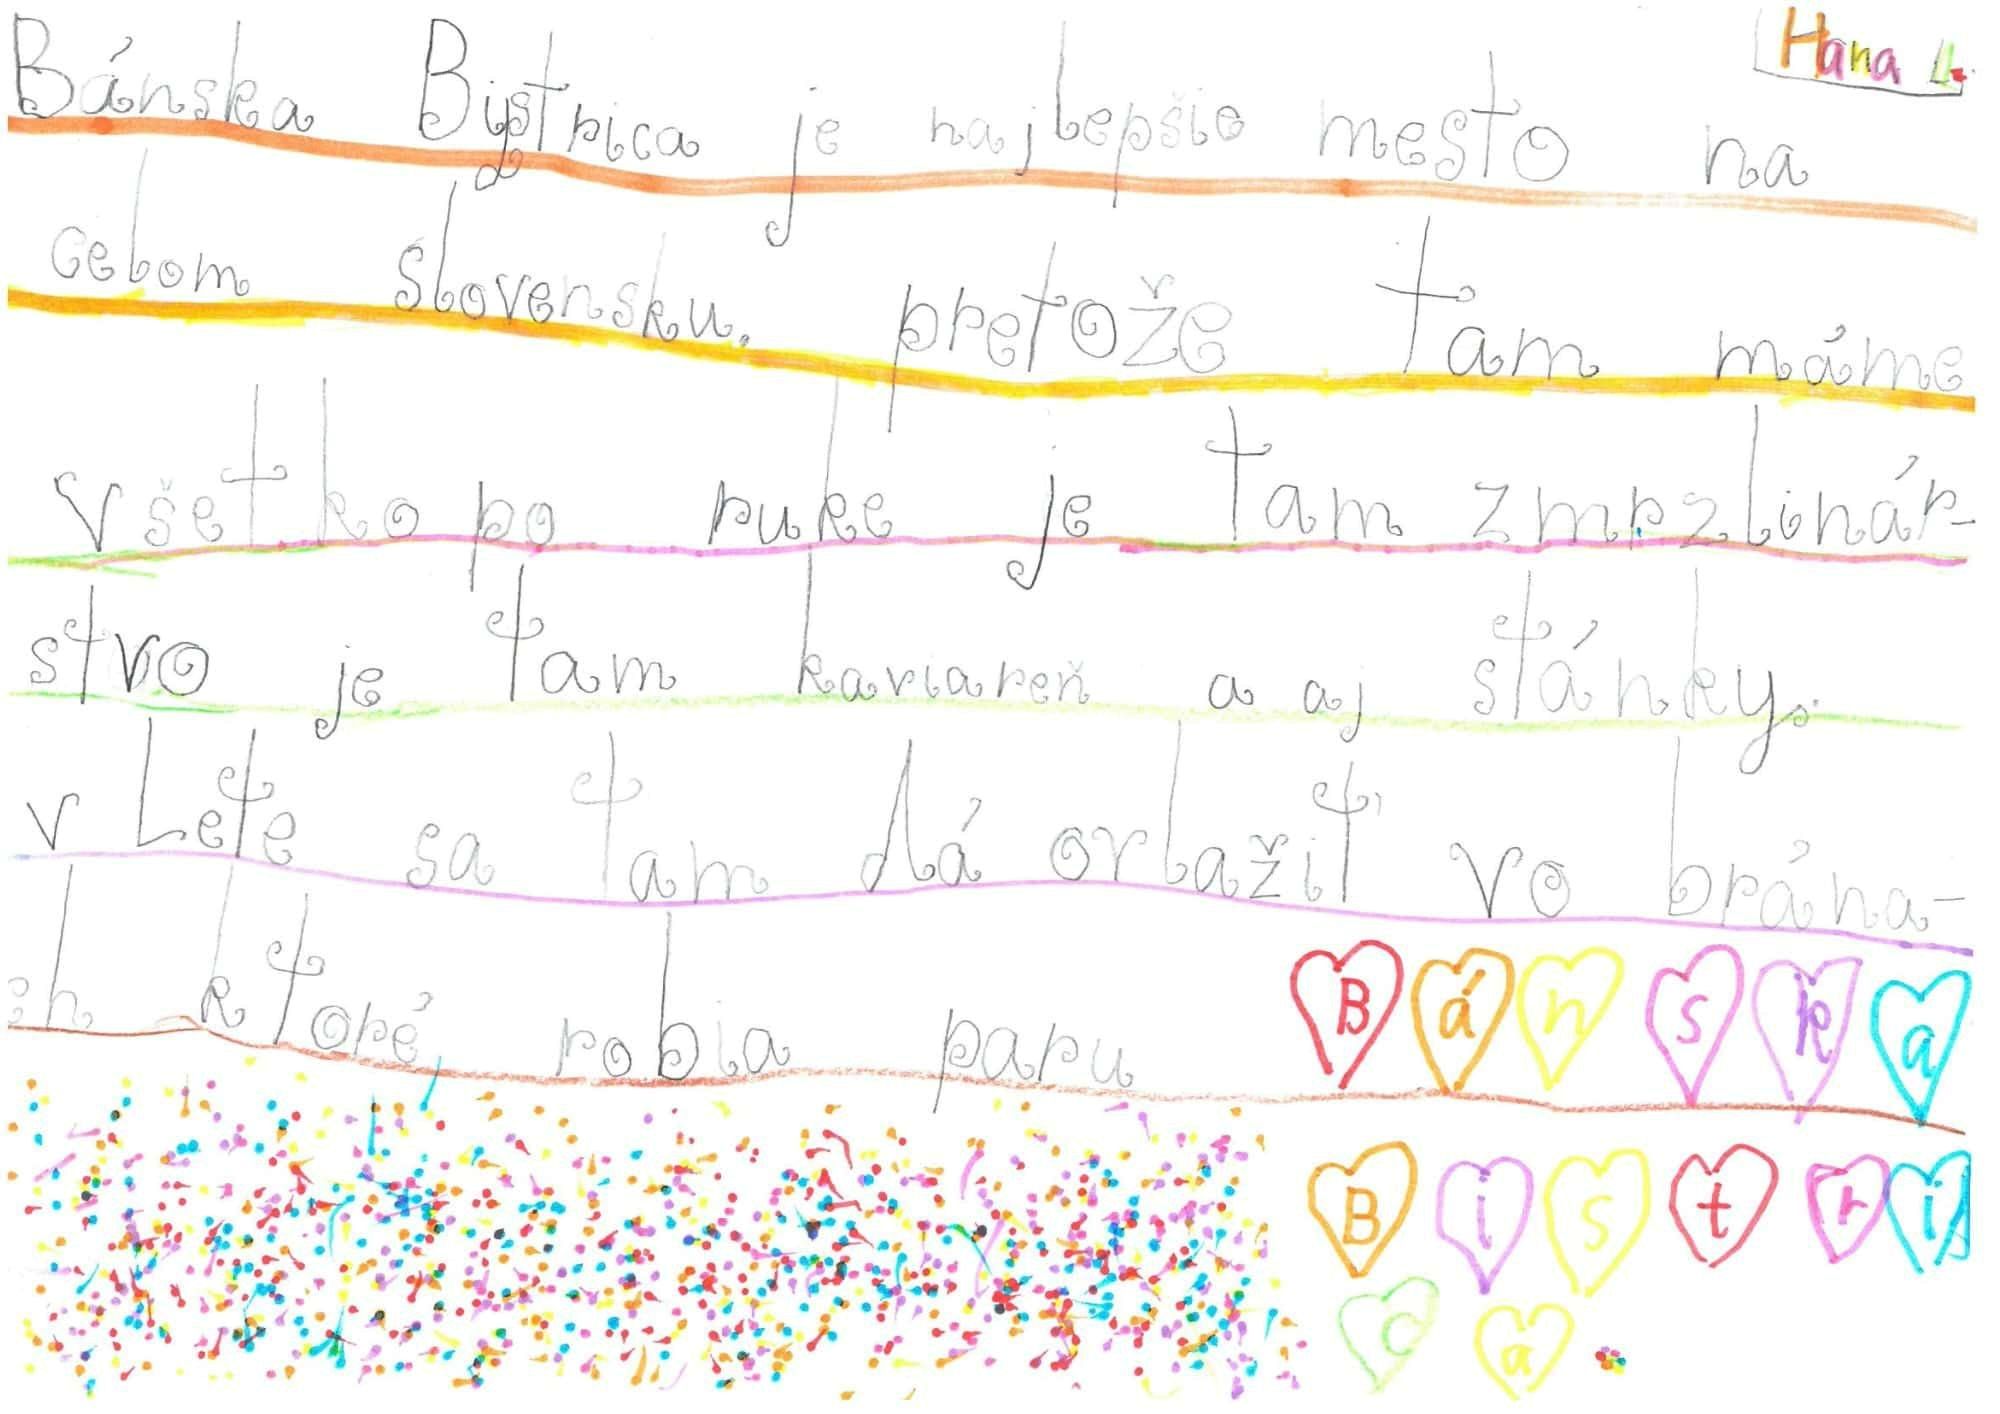 Hana L.
Bánska Bystrica je najlepšie mesto na
celom slovensku, pretože tam máme
všetko po ruke je tam zmrzlinár-
stvo je tam kaviareň a aj stánky.
v Lete sa tam dá ovlažiť vo brána-
ch ktoré robia paru
Bánska
Bistri
ca